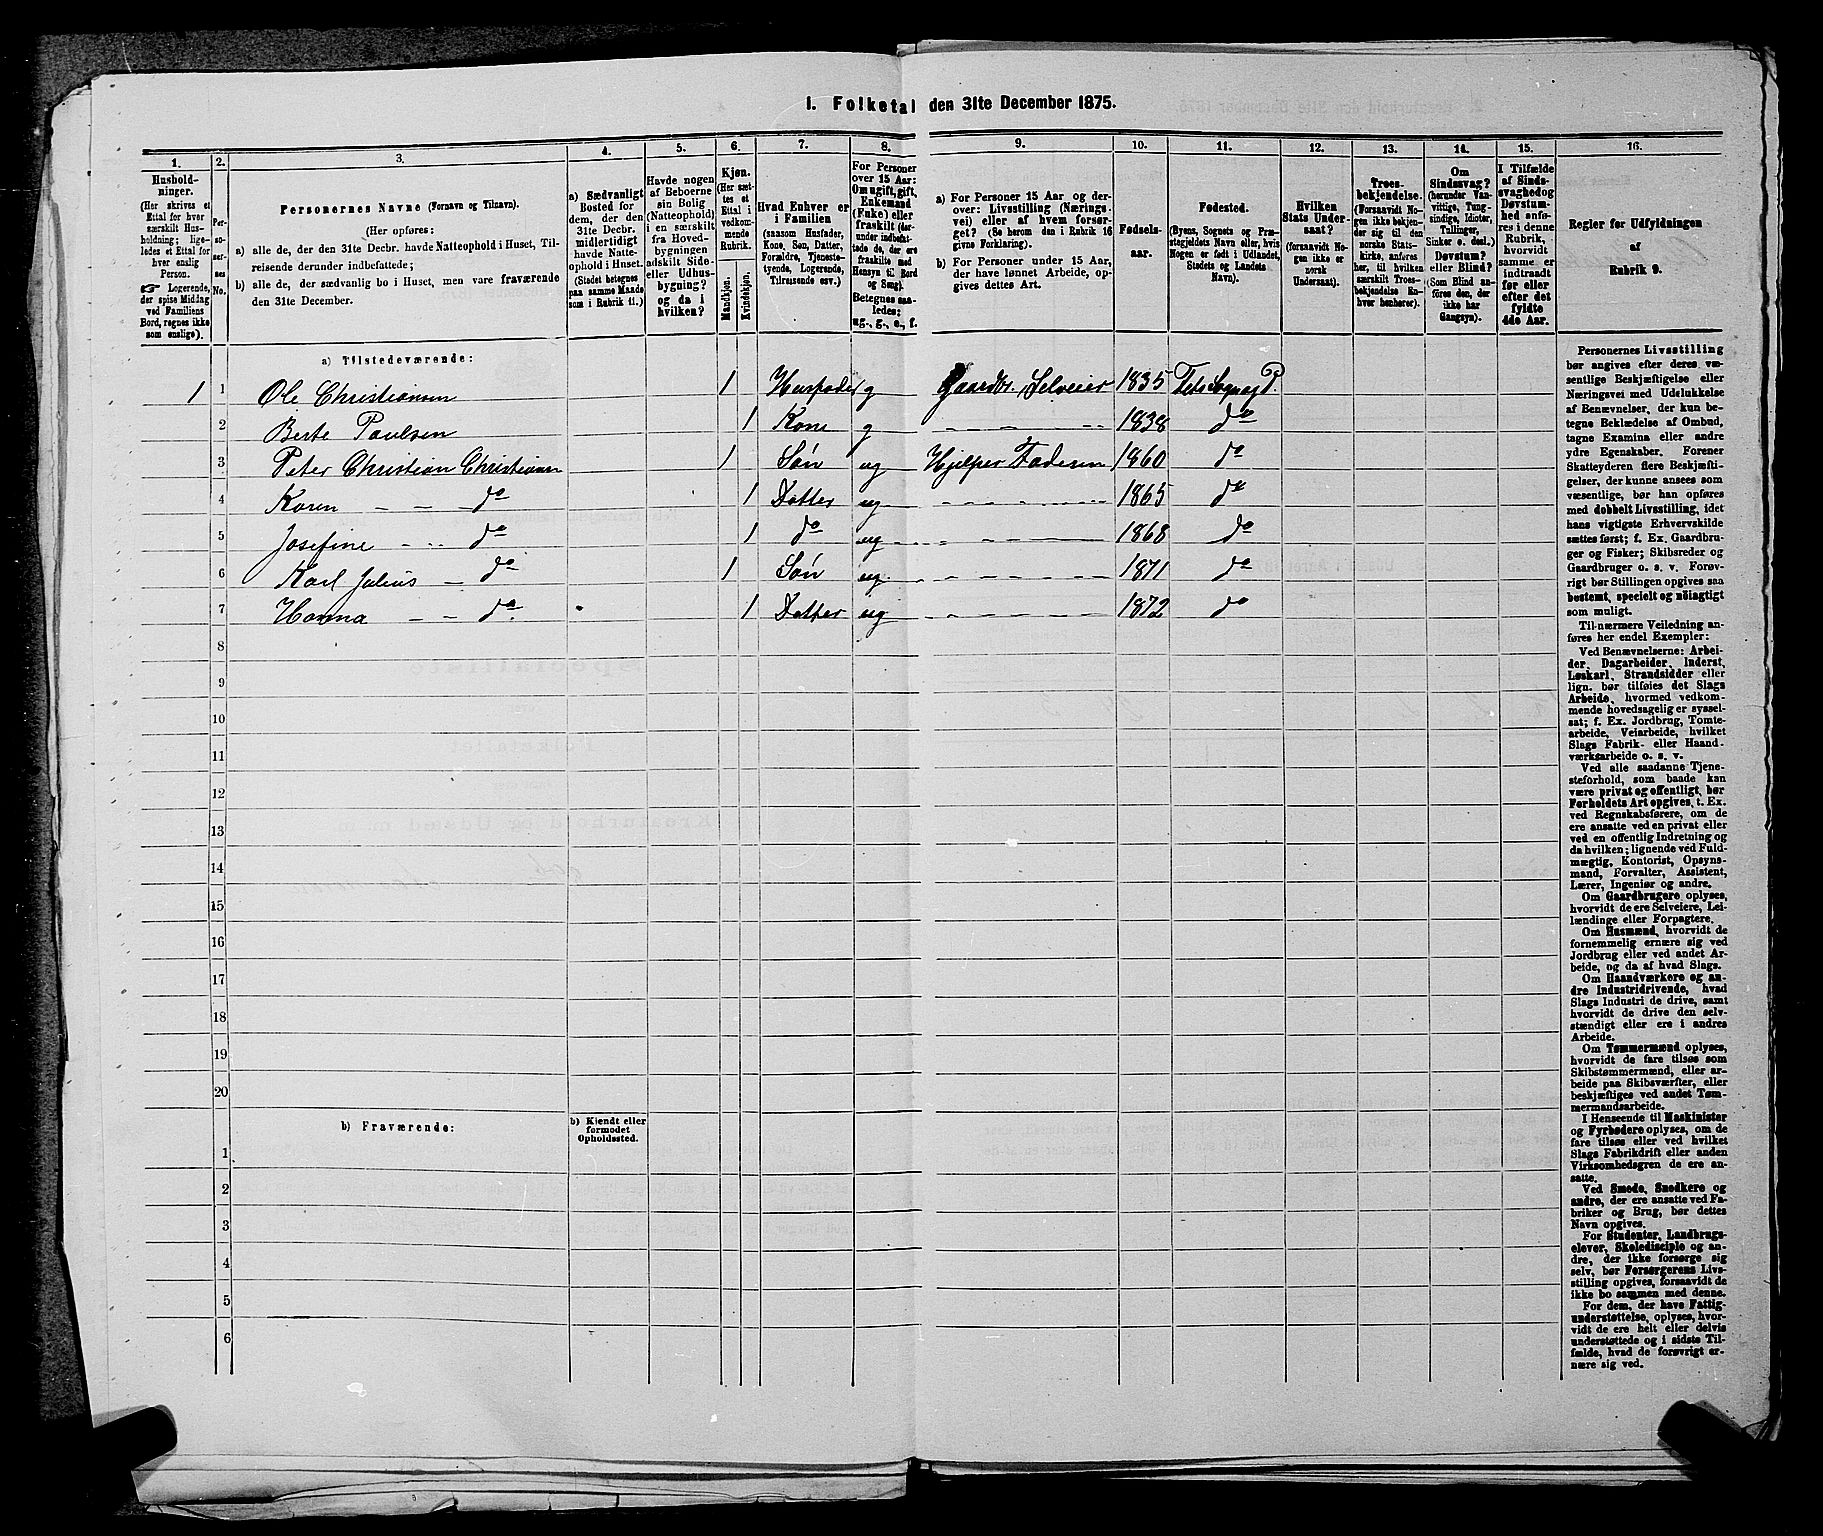 I. Folketal den 31te December 1875.
1. 2. 3. 4. 5. 6. 7. 8. 9. 10. 11. 12. 13. 14. 15. 16.
Husholdninger.
(Her skrives et
Ettal for hver
særskilt Husholdning;
ligeledes et Ettal for
hver enslig
Person.
☞ Logerende,
der spise Middag
ved Familiens
Bord, regnes ikke
som enslige).
Personernes No.
Personernes Navne (Fornavn og Tilnavn).
(Her opføres:
a) alle de, der den 31te Decbr. havde Natteophold i Huset, Tilreisende derunder indbefattede;
b) alle de, der sædvanlig bo i Huset, men vare fraværende
den 31te December.
a) Sædvanligt
Bosted for
dem, der den
31te Decbr.
midlertidigt
havde Natteophold
i Huset.
(Stedet betegnes
paa samme Maade
som i Rubrik 11.)
Havde nogen
af Beboerne
sin Bolig
(Natteophold)
i en særskilt
fra Hovedbygningen
adskilt Side-
eller Udhusbygning?
og da i
hvilken?
Kjøn.
(Her sættes
et
Ettal i
vedkommende
Rubrik.
Mandkjøn.
Kvindekjøn.
Hvad Enhver er
i Familien
(saasom Husfader,
Kone, Søn, Datter,
Forældre, Tjenestetyende,
Logerende,
Tilreisende osv.)
For Personer
over 15 Aar:
Om ugift, gift,
Enkemand
(Enke) eller
fraskilt (derunder
indbefattede
de, der ere
fraskilte med
Hensyn til Bord
og Seng).
Betegnes saaledes:
ug., g., e., f.
a) For Personer 15 Aar og derover:
Livsstilling (Næringsvei)
eller af hvem forsørget?
(Se herom den i Rubrik 16
givne Forklaring).
b) For Personer under 15 Aar,
der have lønnet Arbeide, opgives
dettes Art.
Fødselsaar.
Fødested.
(Byens, Sognets og Præstegjeldets
Navn eller, hvis
Nogen er født i Udlandet,
Stedets og Landets
Navn).
Hvilken
Stats Undersaat?
(forsaavidt Nogen
ikke er
norsk
Undersaat).
Troesbekjendelse.
(Forsaavidt Nogen
ikke bekjender
sig til den
norske Statskirke,
anføres
her, til hvilken
særskilt Troesbekjendelse
Enhver
henhører).
Om
Sindssvag?
(herunder Vanvittige,
Tungsindige,
Idioter,
Tullinger,
Sinker o. desl.)
Døvstum?
eller Blind?
(Som Blind anføres
den, der
ikke har
Gangsyn).
I Tilfælde
af Sindssvaghed
og
Døvstumhed
anføres
i denne
Rubrik,
hvorvidt
samme er
indtraadt
før eller
efter det
fyldte
4de Aar.
Regler for Udfyldningen
af
Rubrik 9.
a) Tilstedeværende:
1 1 Ole Christiansen 1 Husfader g Gaardbr. Selveier 1835 Fets Sogn og P.
2 Berte Paulsen 1 Kone g - - - - 1838 do
3 Peter Christian Christiansen 1 Søn ug Hjelper Faderen 1860 do
4 Karen - - - do 1 Datter ug - - - - 1865 do
5 Josefine - - - do 1 do ug - - - - 1868 do
6 Karl Julius - do 1 Søn ug - - - - 1871 do
7 Hanna - - do. 1 Datter ug - - - - 1872 do
8
9
10
11
12
13
14
15
16
17
18
19
20
b) Fraværende:
b) Kjendt eller
formodet
Opholdssted.
1
2
3
4
5
6
Personernes Livsstilling
bør angives efter deres væsentlige
Beskjæftigelse eller
Næringsvei med Udelukkelse
af Benævnelser, der kun betegne
Beklædelse af Ombud,
tagne Examina eller andre
ydre Egenskaber. Forener
Skatteyderen flere Beskjæftigelser,
der kunne ansees som
væsentlige, bør han opføres
med dobbelt Livsstilling, idet
hans vigtigste Erhvervskilde
sættes først; f. Ex. Gaardbruger
og Fisker; Skibsreder og
Gaardbruger o. s. v. Forøvrigt
bør Stillingen opgives saa
bestemt, specielt og nøiagtigt
som muligt.
Til nærmere Veiledning anføres
her endel Exempler:
Ved Benævnelserne: Arbeider,
Dagarbeider, Inderst,
Løskarl, Strandsidder eller
lign. bør tilføies det Slags
Arbeide, hvormed vedkommende
hovedsagelig er sysselsat;
f. Ex. Jordbrug, Tomtearbeide,
Veiarbeide, hvilket
Slags Fabrik- eller Haandværksarbeide
o. s. v.
Ved alle saadanne Tjenesteforhold,
som baade kan
være privat og offentligt, bør
Forholdets Art opgives, t. Ex.
ved Regnskabsførere, om de
ere ansatte ved en privat eller
ved en offentlig Indretning og
da hvilken; lignende ved Fuldmægtig,
Kontorist, Opsynsmand,
Forvalter, Assistent,
Lærer, Ingeniør og andre.
Om Gaardbrugere oplyses,
hvorvidt de ere Selveiere, Leilændinge
eller Forpagtere.
Om Husmænd, hvorvidt de
fornemmelig ernære sig ved
Jordbrug eller ved andet Arbeide,
og da af hvad Slags.
Om Haandværkere og andre
Industridrivende, hvad
Slags Industri de drive, samt
hvorvidt de drive den selvstændigt
eller ere i andres
Arbeide.
Om Tømmermænd oplyses,
hvorvidt de fare tilsøs som
Skibstømmermænd, eller arbeide
paa Skibsværfter, eller
beskjæftiges ved andet Tømmermandsarbeide.
I Henseende til Maskinister
og Fyrbødere oplyses, om de
fare tilsøs eller ved hvilket
Slags Fabrikdrift eller anden
Virksomhedsgren de ere ansatte.
Ved Smede, Snedkere og
andre, der ere ansatte ved Fabriker
og Brug, bør dettes
Navn opgives.
For Studenter, Landbrugselever,
Skoledisciple og andre,
der ikke forsørge sig
selv, bør Forsørgerens Livsstilling
opgives, forsaavidt de
ikke bo sammen med denne.
For dem, der have Fattigunderstøttelse,
oplyses, hvorvidt
de ere helt eller delvis
understøttede og i sidste Tilfælde,
hvad de forøvrigt ernære
sig ved.